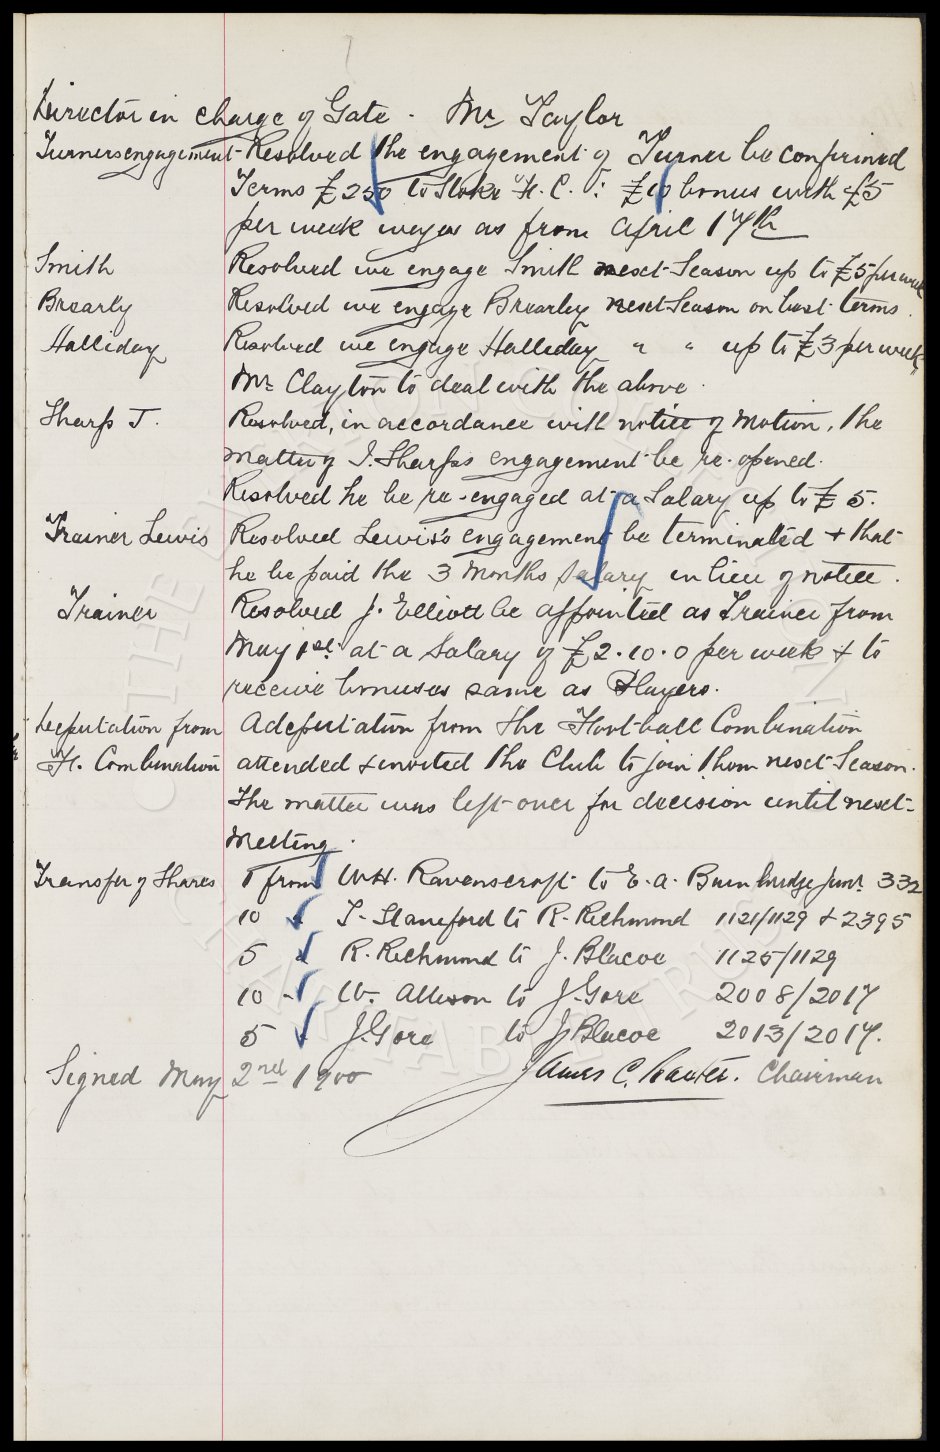 Director in charge of Gate. Mr Taylor
Turners engagement Resolved the engagement of Turner be confirmed
Terms £250 to Stoke F. C. : £10 bonus with £5
per week wages as from April 17th
Smith Resolved we engage Smith next Season up to £5 per week
Brearly Resolved we engage Brearley next Season on best terms.
Halliday Resolved we engage Halliday " " up to £3 per week
Mr Clayton to deal with the above.
Sharp J. Resolved, in accordance with notice of motion, the
matter of J. Sharp's engagement be re-opened.
Resolved he be re-engaged at a Salary up to £5.
Trainer Lewis Resolved Lewis's engagement be terminated + that
he be paid the 3 months salary in lieu of notice.
Trainer Resolved J. Elliott be appointed as Trainer from
May 1st at a Salary of £2.10.0 per week + to
receive bonuses same as Players.
Deputation from A deputation from the Football Combination
F. Combination attended + invited the Club to join them next Season.
The matter was left over for decision until next
Meeting.
Transfer of Shares 1 from W.H. Ravenscroft to E. A. Bainbridge Junr. 332
10 " T. Staneford to R. Richmond 1121/1129 + 2395
5 " R. Richmond to J. Blacoe 1125/1129
10 " W. Allison to J. Gore 2008/2017
5 " J. Gore to J Blacoe 2013/2017.
Signed May 2nd 1900 James C. Baxter. Chairman
THE EVERTON COLLECTION
CHARITABLE TRUST